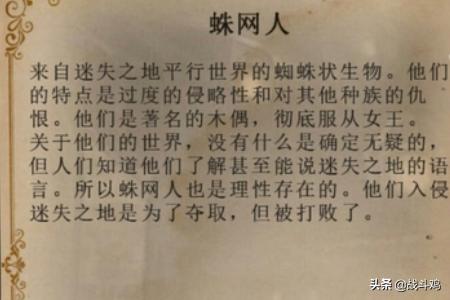 蛛网人
来自迷失之地平行世界的蜘蛛状生物。他们
的特点是过度的侵略性和对其他种族的仇
恨。他们是著名的木偶，彻底服从女王。
关于他们的世界，没有什么是确定无疑的，
但人们知道他们了解甚至能说迷失之地的语
言。所以蛛网人也是理性存在的。他们入侵
迷失之地是为了夺取，但被打败了。
头条 @战斗鸡